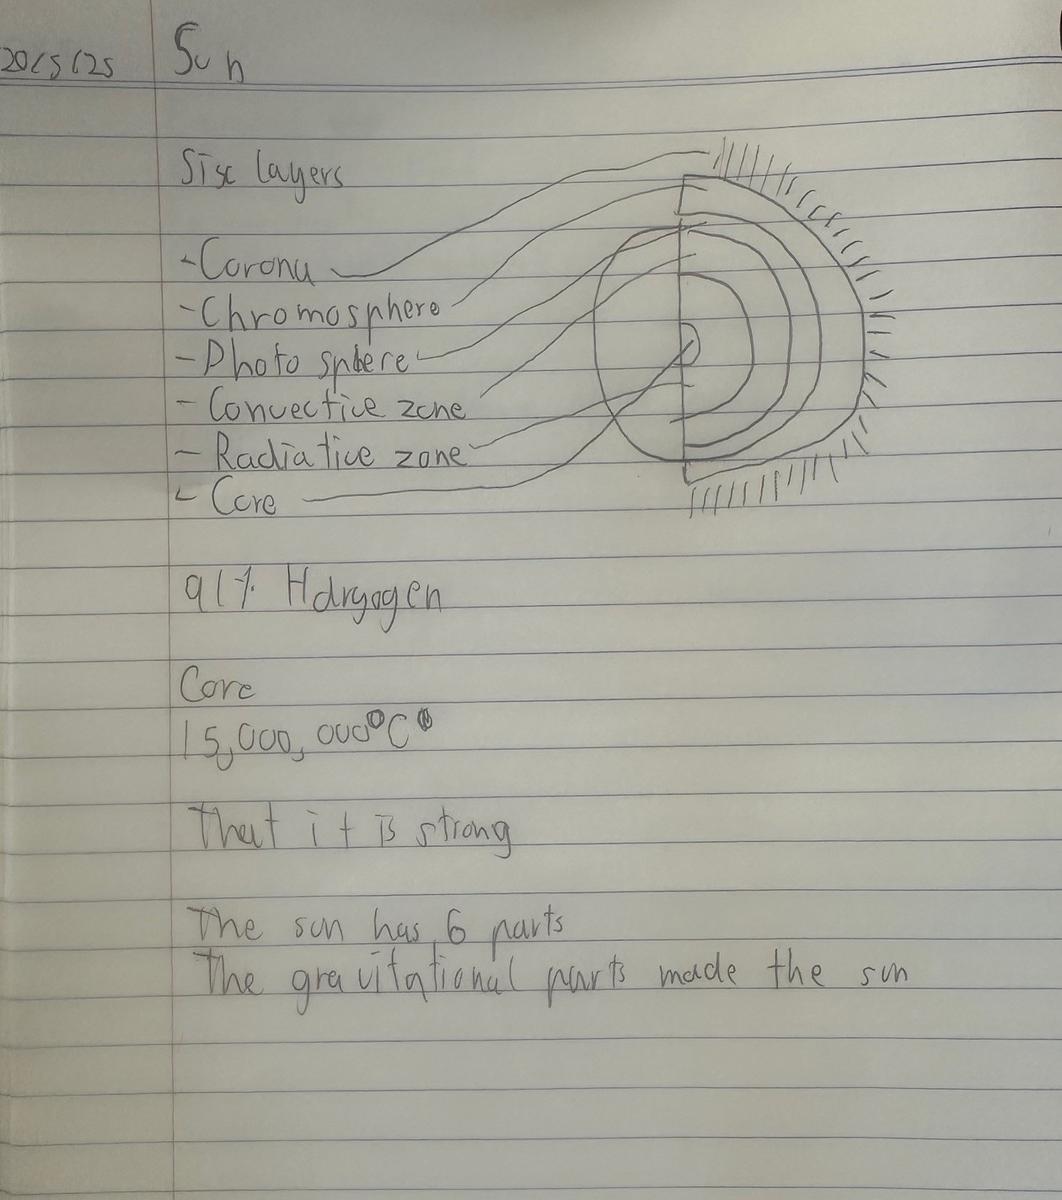 20/5/25
Sun
Sisc layers
-Corona
-Chromosphere
-Photo sphere
-Convective zone
-Radiative zone
-Core
91% Hdryogen
Core
15,000,000°C
That it is strong
The sun has 6 parts
The gravitational parts made the sun